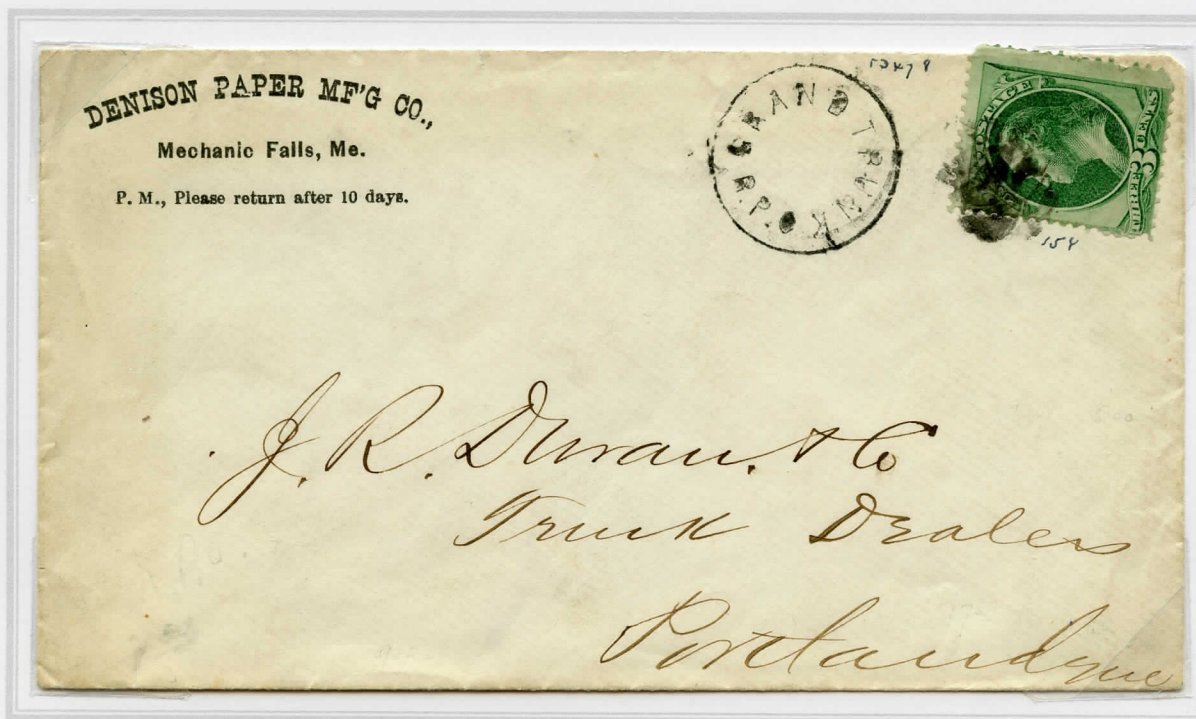 DENISON PAPER MF'G CO.,
Mechanic Falls, Me.
P. M., Please return after 10 days.
GRAND TRUNK
R.P.O
POSTAGE
154
J. R. Duran. & Co
Trunk Dealers
Portland Me